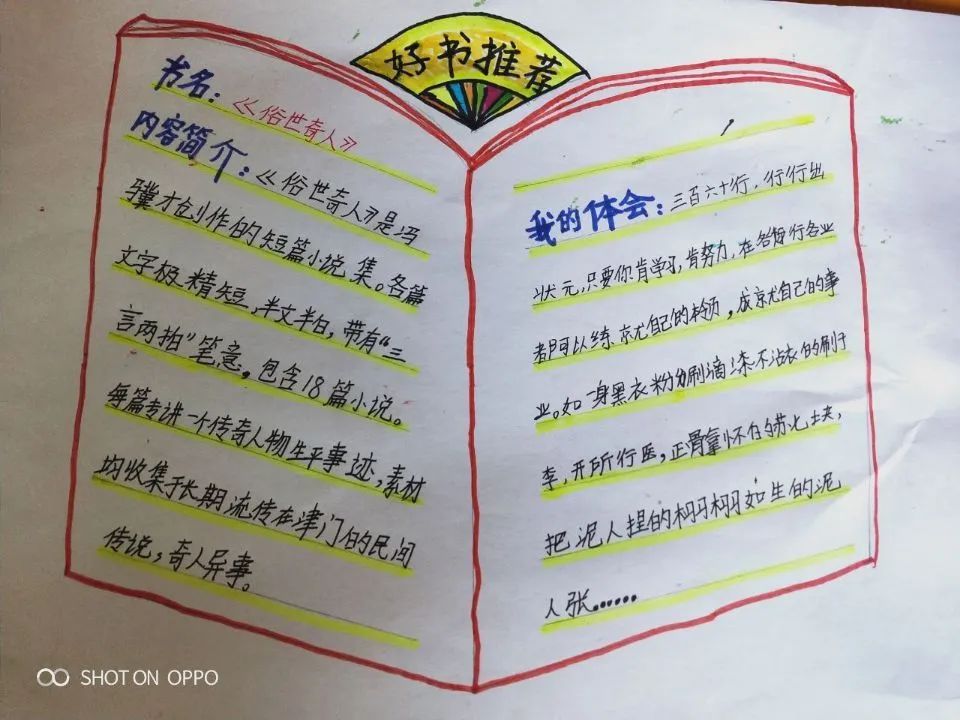 好书推荐
书名：《俗世奇人》
内容简介：《俗世奇人》是冯
骥才创作的短篇小说集。各篇
文字极精短，半文半白，带有“三
言两拍”笔意。包含18篇小说。
每篇专讲一个传奇人物生平事迹，素材
均收集于长期流传在津门的民间
传说，奇人异事。
我的体会：三百六十行，行行出
状元，只要你肯学习，肯努力，在各行各业
都可以练就自己的本领，成就自己的事
业。如一身黑衣粉刷滴漆不沾衣的刷子
李，开所行医，正骨拿怀的苏七块，
把泥人捏的栩栩如生的泥
人张……
SHOT ON OPPO